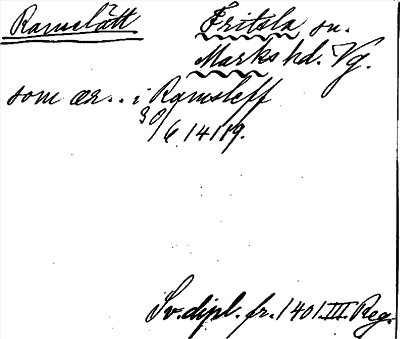 Ramslätt
Fritsla sn.
Marks hd. Vg.
som ær.. i Ramsleff
30/6 1419.
Sv. dipl. fr. 1401. III. Reg.